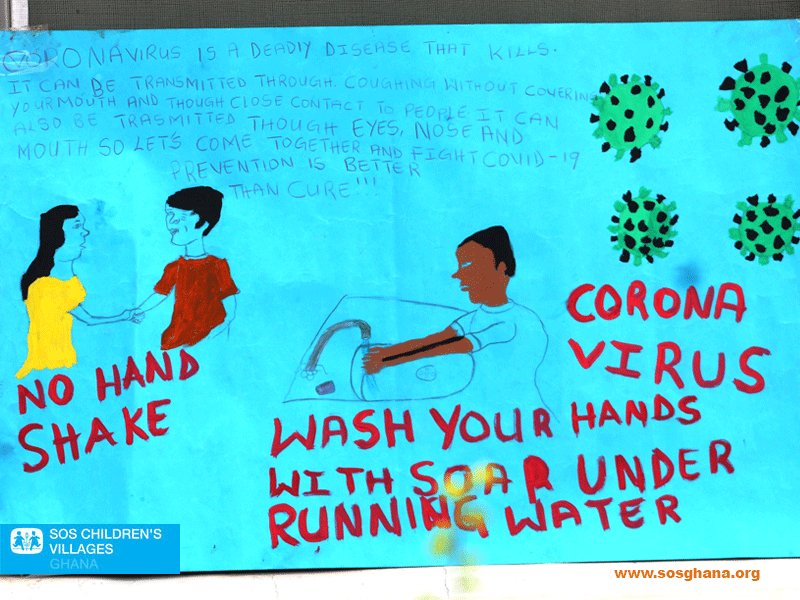 CORONAVIRUS IS A DEADLY DISEASE THAT KILLS.
IT CAN BE TRANSMITTED THROUGH COUGHING WITHOUT COVERING
YOUR MOUTH AND THOUGH CLOSE CONTACT TO PEOPLE IT CAN
ALSO BE TRASMITTED THOUGH EYES, NOSE AND
MOUTH SO LET'S COME TOGETHER AND FIGHT COVID-19
PREVENTION IS BETTER
THAN CURE!!!
NO HAND
SHAKE
CORONA
VIRUS
WASH YOUR HANDS
WITH SOAP UNDER
RUNNING WATER
SOS CHILDREN'S
VILLAGES
GHANA
www.sosghana.org